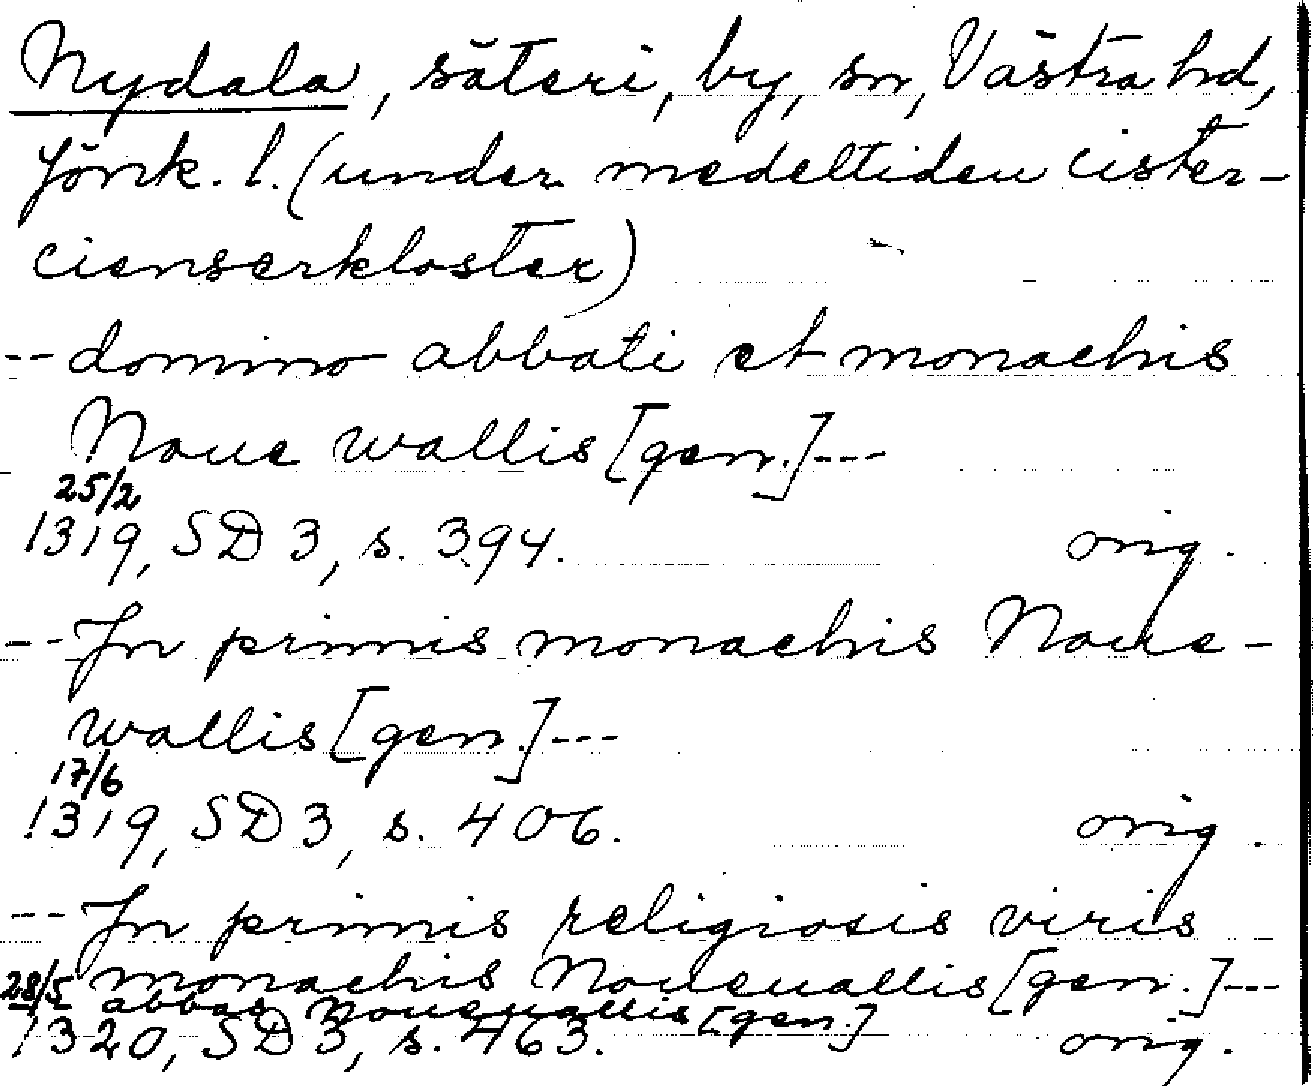 Nydala, säteri, by, sn, Västra hd,
Jönk. l. (under medeltiden cister-
cienserkloster)
-- domino abbati et monachis
Noue wallis [gen.] ---
25/2
1319, SD 3, s. 394. orig.
-- Jn primis monachis Noue-
wallis [gen.] ---
17/6
1319, SD 3, s. 406. orig.
-- Jn primis religiosis viris
28/5 monachis Noueuallis [gen.] ---
abbas Noueuallis [gen.]
1320, SD 3, s. 463. orig.